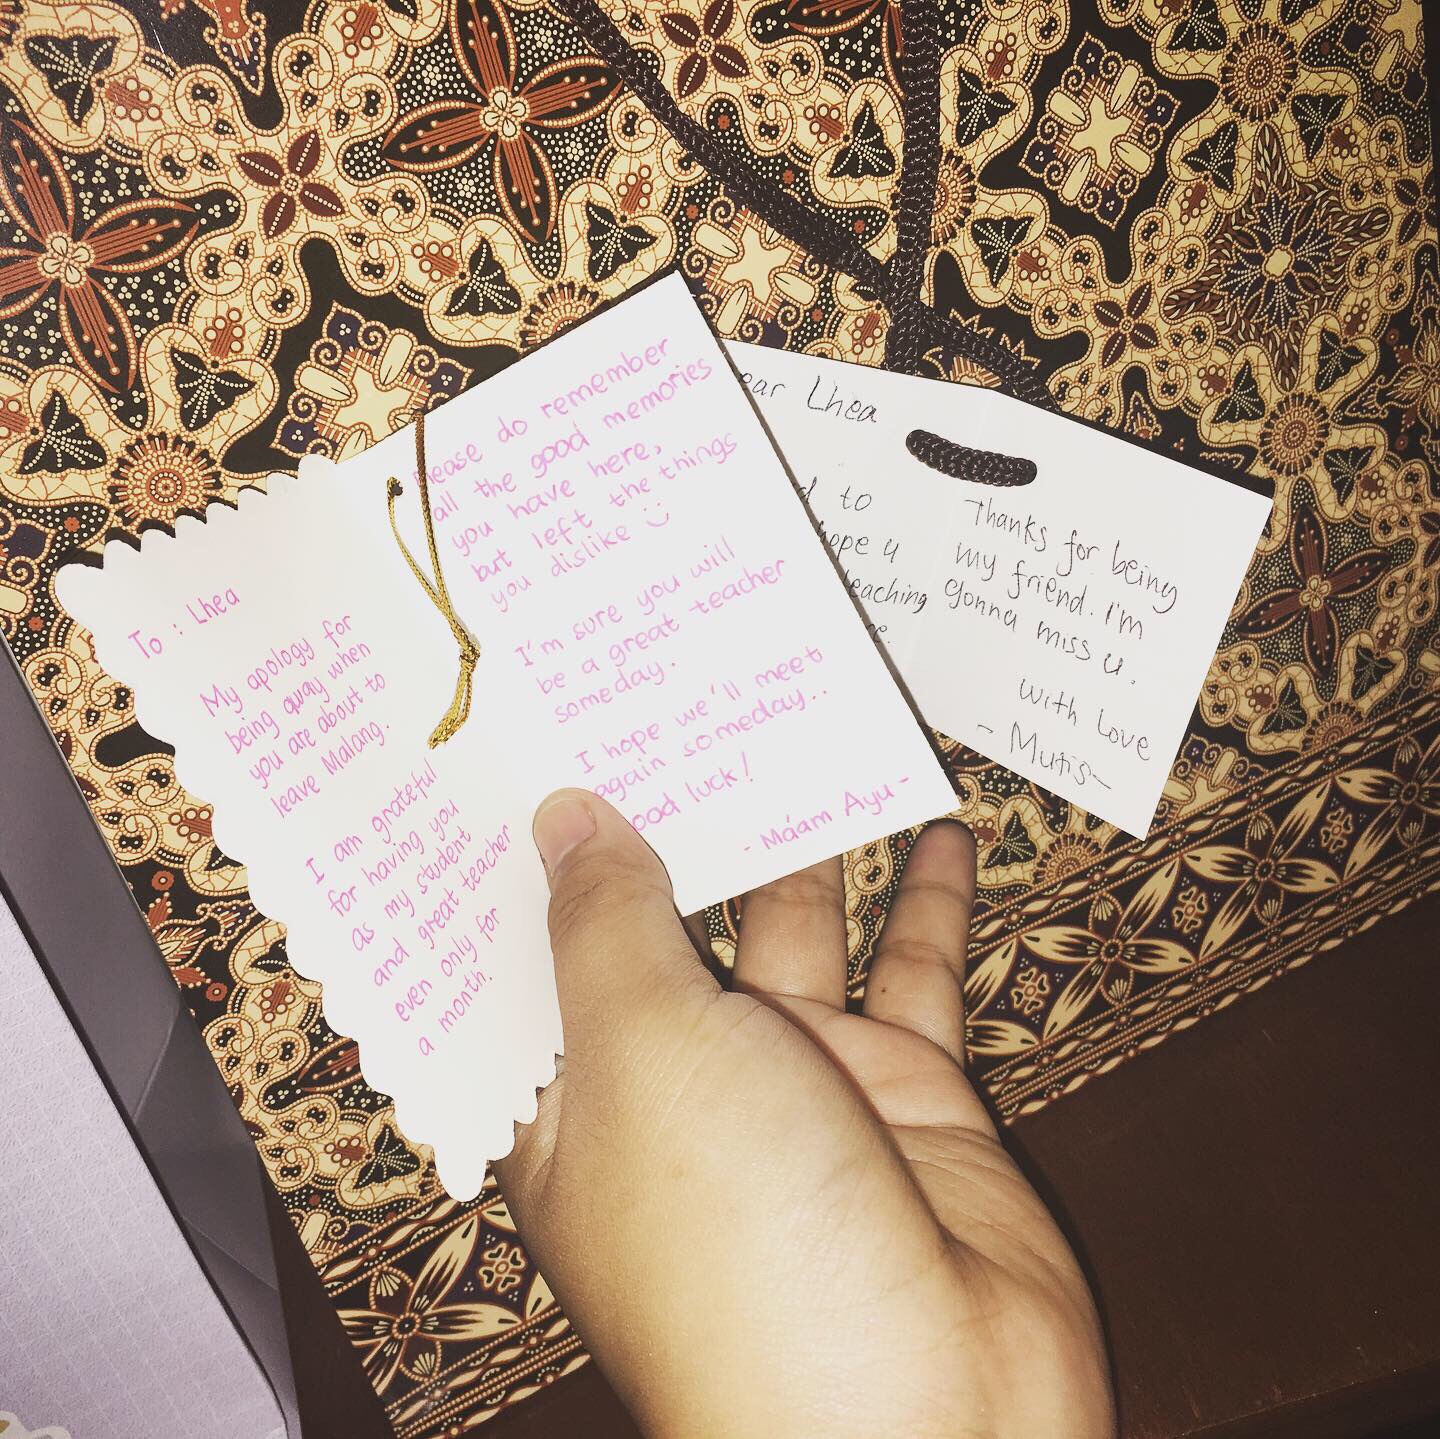 To : Lhea
My apology for
being away when
you are about to
leave Malang.
I am grateful
for having you
as my student
and great teacher
even only for
a month.
Please do remember
all the good memories
you have here,
but left the things
you dislike :)
I'm sure you will
be a great teacher
someday.
I hope we'll meet
again someday..
ood luck!
- Má'am Ayu -
ear Lhea
d to
hope u
teaching
re.
Thanks for being
my friend. I'm
gonna miss u.
with Love
- Mutis -